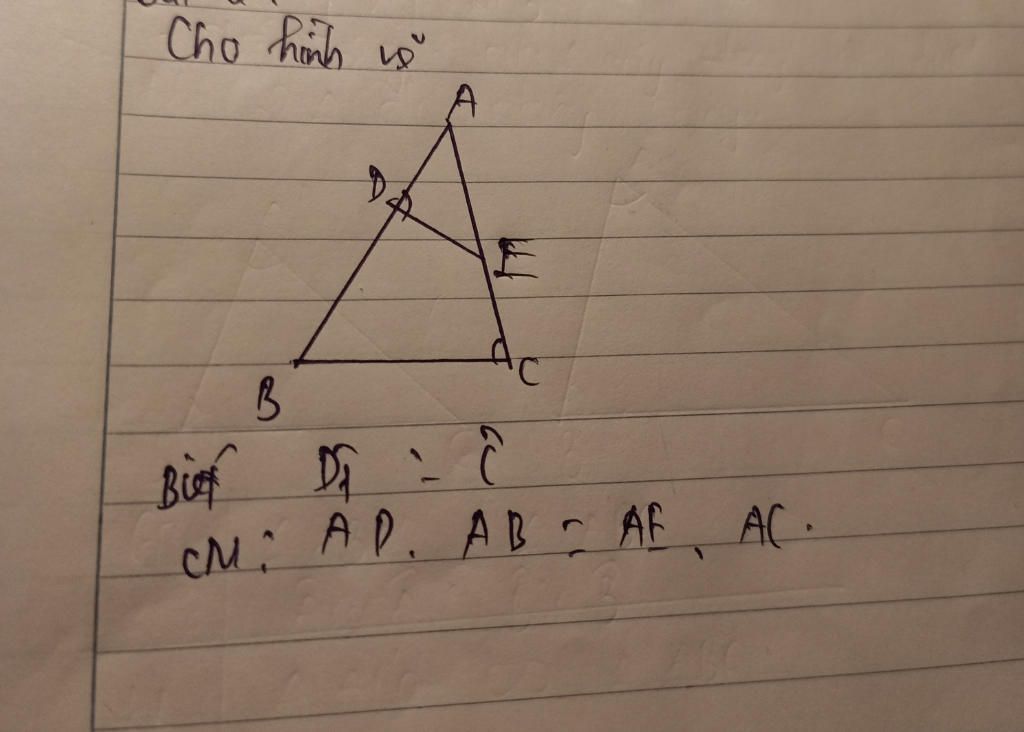 Cho hình vẽ
A
D
E
B
C
Biết D̂1 = Ĉ
CM: AD. AB = AE. AC.